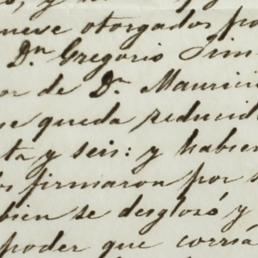 nueve otorgados po
Dn Gregorio Jim
or de Dn Maurici
se queda reducid
ta y seis: y habien
firmaron por
bien se desglosó y
poder que corria